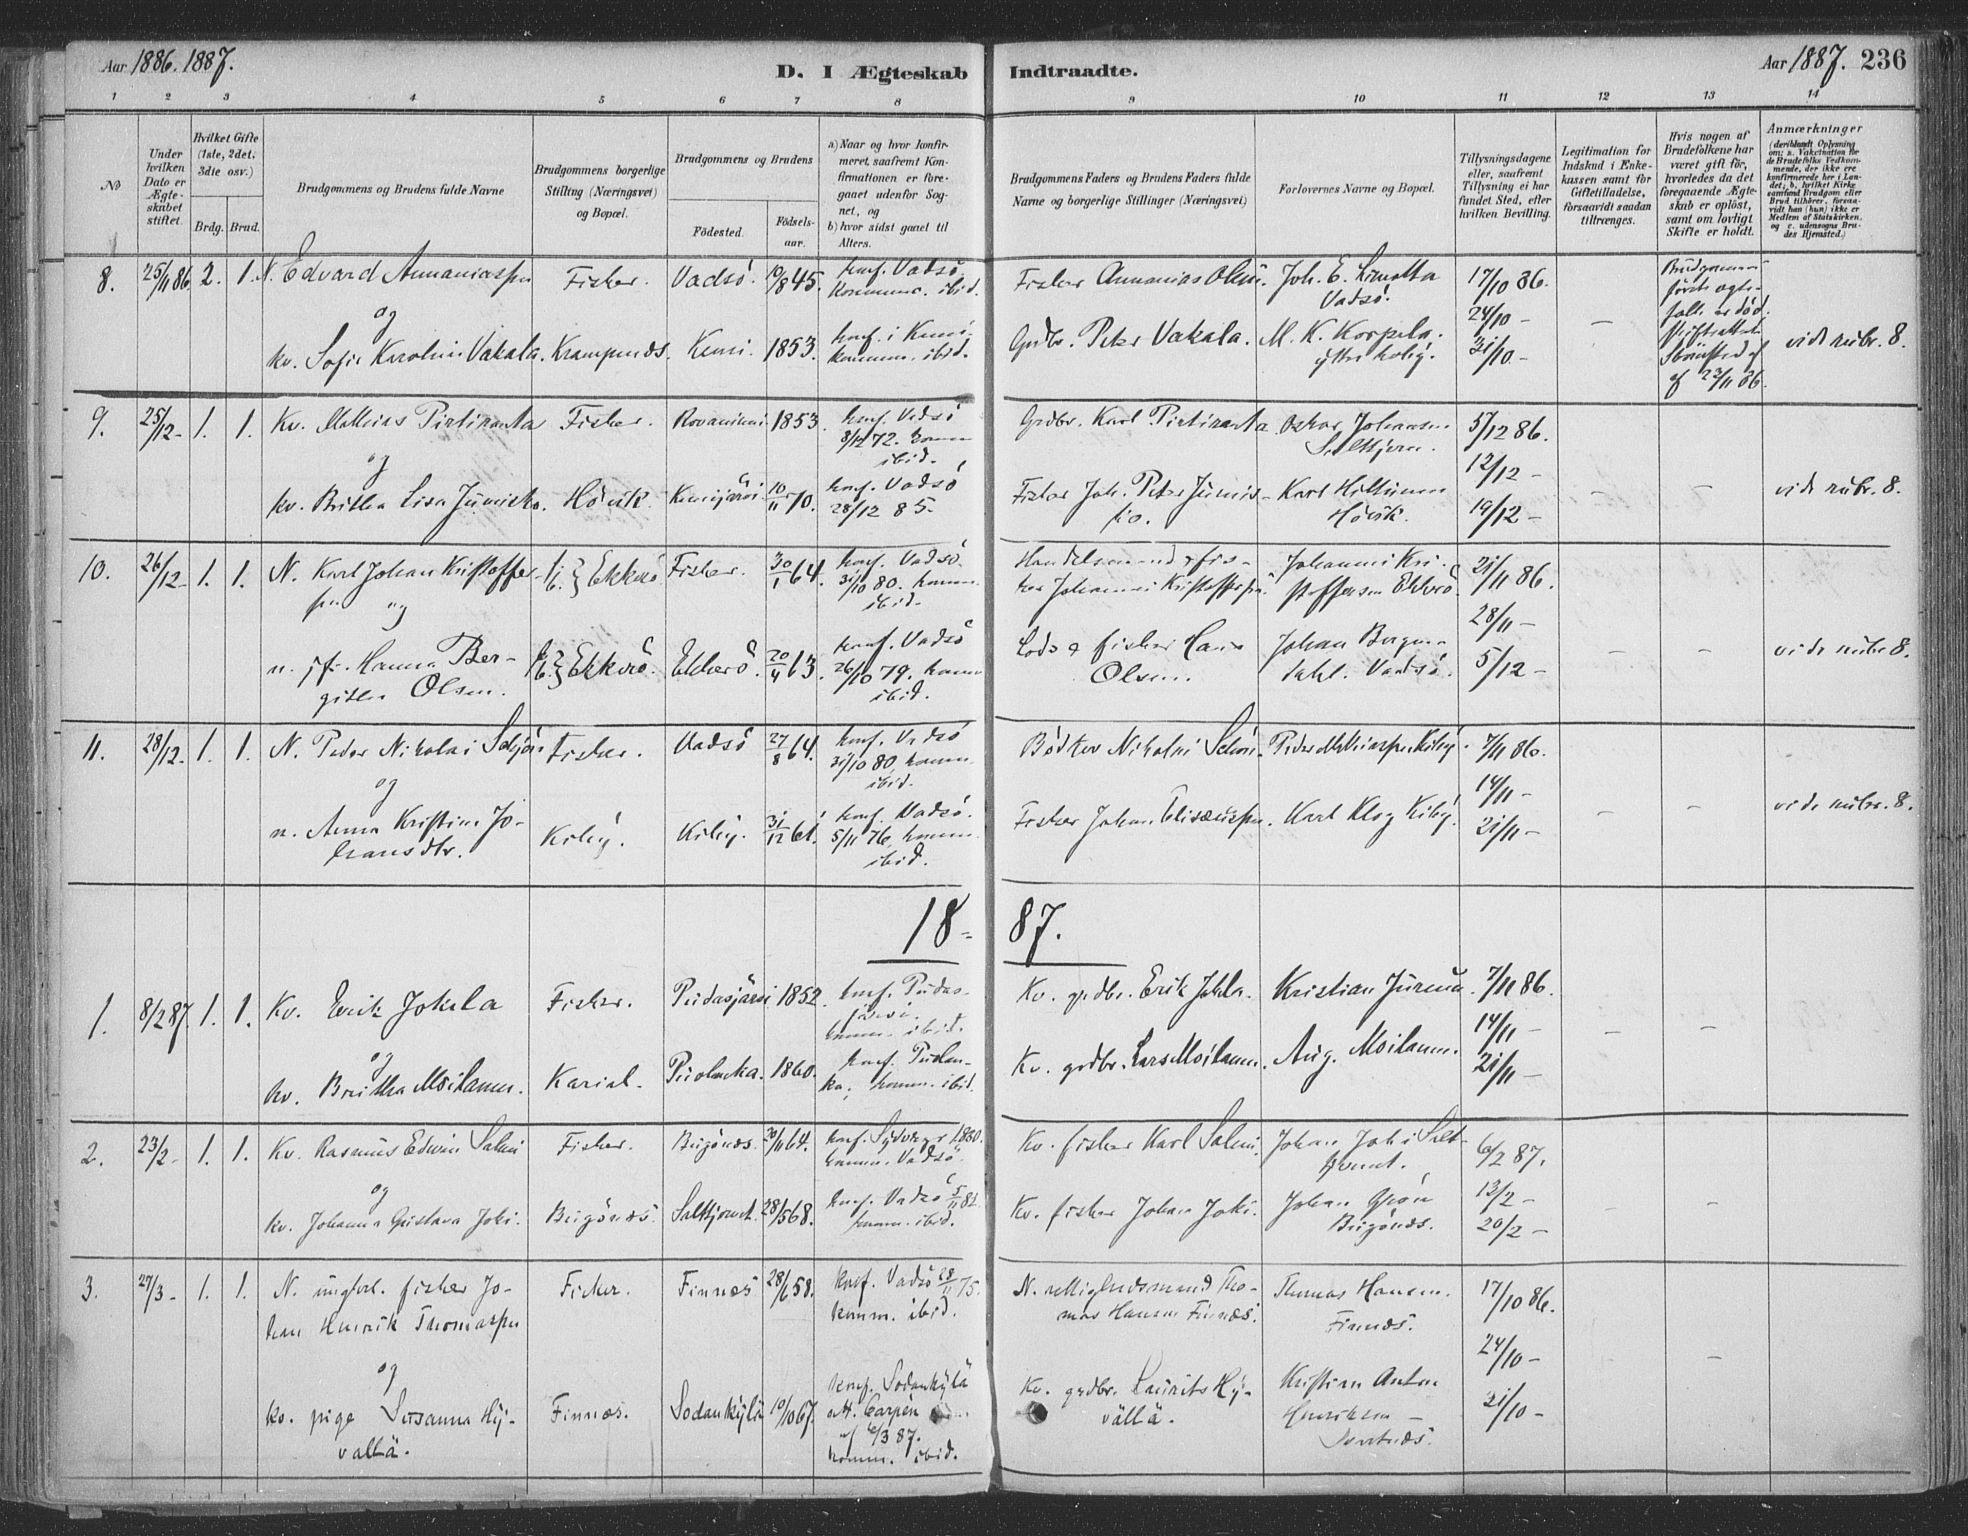 Aar 1886. 1887.
D. I Ægteskab Indtraadte.
Aar 1887. 236
1 2 3 4 5 6 7 8 9 10 11 12 13 14
No
Under hvilken Dato er Ægteskabet stiftet.
Hvilket Gifte (1ste, 2det, 3die osv.)
Brdg. Brud.
Brudgommens og Brudens fulde Navne
Brudgommens borgerlige Stilling (Næringsvei) og Bopæl.
Brudgommens og Brudens
Fødested.
Fødselsaar.
a) Naar og hvor konfirmeret, saafremt Konfirmationen er foregaaet udenfor Sognet, og
b) hvor sidst gaaet til Alters.
Brudgommens Faders og Brudens Faders fulde Navne og borgerlige Stillinger (Næringsvei)
Forlovernes Navne og Bopæl.
Tillysningsdagene eller, saafremt Tillysning ei har fundet Sted, efter hvilken Bevilling.
Legitimation for Indskud i Enkekassen samt for Giftetilladelse, forsaavidt saadan tiltrænges.
Hvis nogen af Brudefolkene har været gift før, hvorledes da det foregaaende Ægteskab er opløst, samt om lovligt Skifte er holdt.
Anmærkninger
(deriblandt Oplysning om: a. Vakcination for de Brudefolks Vedkommende, der ikke ere konfirmerede her i Landet; b. hvilket Kirkesamfund Brudgom eller Brud tilhører, forsaavidt han (hun) ikke er Medlem af Statskirken, og c. udensogns Brudes Hjemsted.)
8. 25/11 86. 2. 1. N. Edvard Annaniaspn Fisker. Vadsö. 10/8 45. konf. Vadsö. kommun. ibid. Fisker Annanias Olsen. Joh. E. Vadsö. 17/10 86.
og 24/10 –
kv. Sofie Karolin Vakala. Krampenæs. Kemi. 1853. konf. i Kemi, kommun. ibid. Grdbr. Peter Vakala. M. K. Korpela. ytre Kiby. 31/10 – – Brudgommens første ægtefalle er død. af 23/11 86. vide rubr. 8.
9. 25/12 – 1. 1. Kv. Mathias Pirtiranta Fisker. Rovaniemi 1853. konf. Vadsö 8/12 72. komm ibid. Grdbr. Karl Pirtiranta. Oskar Johansen 5/12 86.
og 12/12 –
kv. Britha Lisa Jumisko. Høvik. Kemijärvi 10/11 70. konf. Vadsö 28/12 85. Fisker Joh. Peter Jumisko. Karl Hiltunen Høvik. 19/12 – – – vide rubr. 8.
10. 26/12 – 1. 1. N. Karl Johan Kristoffersen Ekkerö Fisker. 30/1 64. konf. Vadsö. 31/10 80. komm. ibid. Handelsmand & fisker Johannes Kristoffersen Johannes Kristoffersen Ekkerö. 21/11 86.
og 28/11 –
n. pf. Hanna Bergitte Olsen. Ekkerö. Ekkerö. 20/4 63. konf. Vadsö 26/10 79. komm ibid. Lods & fisker Hans Olsen. Johan Vadsö. 5/12 – – – vide rubr 8.
11. 28/12. 1. 1. N. Peder Nikolai Fisker. Vadsö 27/8 64. konf. Vadsö 31/10 80, komm. ibid. Bødker Nikolai Peder Mathiaspn Kiby. 7/11 86.
og 14/11 –
n. Anna Kristine Johansdtr. Kiby. Kiby. 31/12 61. konf. Vadsö. 5/11 76, komm. ibid. Fisker Johan Elisæuspn. Karl Kiby. 21/11 – – – vide rubr. 8.
18– 87.
1. 8/2 87. 1. 1. Kv. Erik Jokela Fisker. Pudasjärvi 1852. konf. Pudasjärvi. komm. ibid. Kv. grdbr. Erik Jokela. Kristian 7/11 86.
og 14/11 –
kv. Britha Moilanen. Karial. Puolanka. 1860. konf. Puolanka, komm. ibid. Kv. grdbr. Lars Moilanen. Aug. Moilanen. 21/11 – – –
2. 23/2 – 1. 1. Kv. Rasmus Edvin Salmi Fisker. Bugönæs. 20/11 64. konf. 1880. komm. Vadsö Kv. fisker Karl Salmi. Johan Joki 6/2 87.
og 13/2 –
kv. Johanna Gustava Joki. Bugönæs. Saltkjernet. 28/5 68. konf. Vadsö 5/11 82. komm. ibid. Kv. fisker Johan Joki. Johan Bugönæs. 20/2 – – –
3. 27/3 – 1. 1. N. ungkarl. fisker Johan Henrik Thomaspn Fisker. Finnæs 28/6 58. konf. Vadsö 28/11 75. komm. ibid. N. rettighedsmand Thomas Hansen Finnæs. Thomas Hansen. Finnæs. 17/10 86.
og 24/10 –
kv. pige Susanna Hyvällä. Finnæs. Sodankylä 10/10 67. konf. Sodankylä att. Carpén af 6/3 87. komm. ibid. Kv. grdbr. Laurits Hyvällä. Kristian Anton Henriksen 31/10 – –